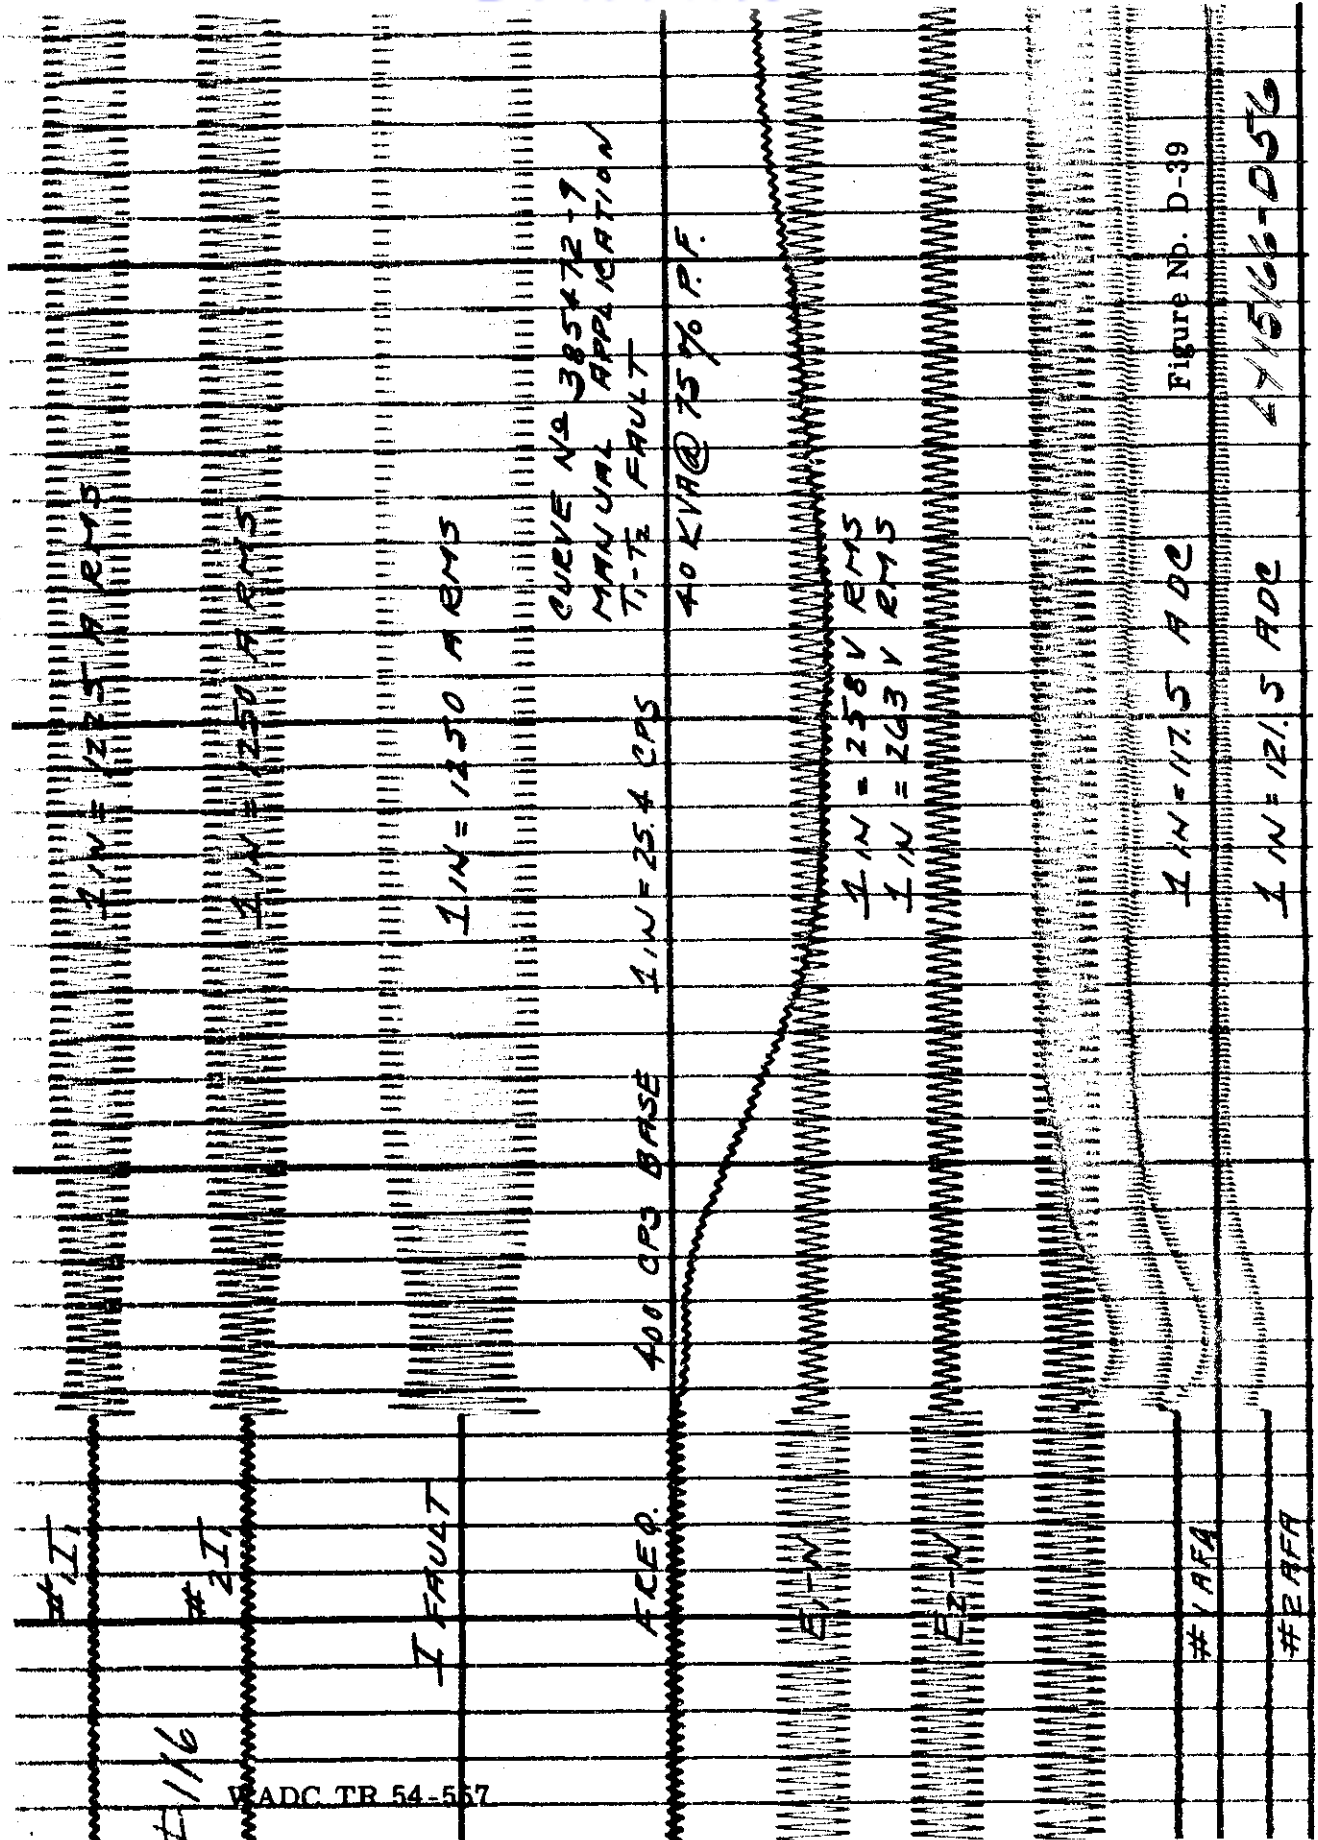 #1 I1
1 IN = 1225 A RMS
#2 I1
1 IN = 1250 A RMS
I FAULT
1 IN = 1250 A RMS
CURVE Nº 385472-9
MANUAL APPLICATION
T1-T2 FAULT
FREQ.
400 CPS BASE
1 IN = 25.4 CPS
40 KVA @ 75 % P.F.
E1-N
1 IN = 258 V RMS
E2-N
1 IN = 263 V RMS
#1 AFA
1 IN = 117.5 A DC
Figure No. D-39
#2 AFA
1 IN = 121.5 ADC
WADC TR 54-557